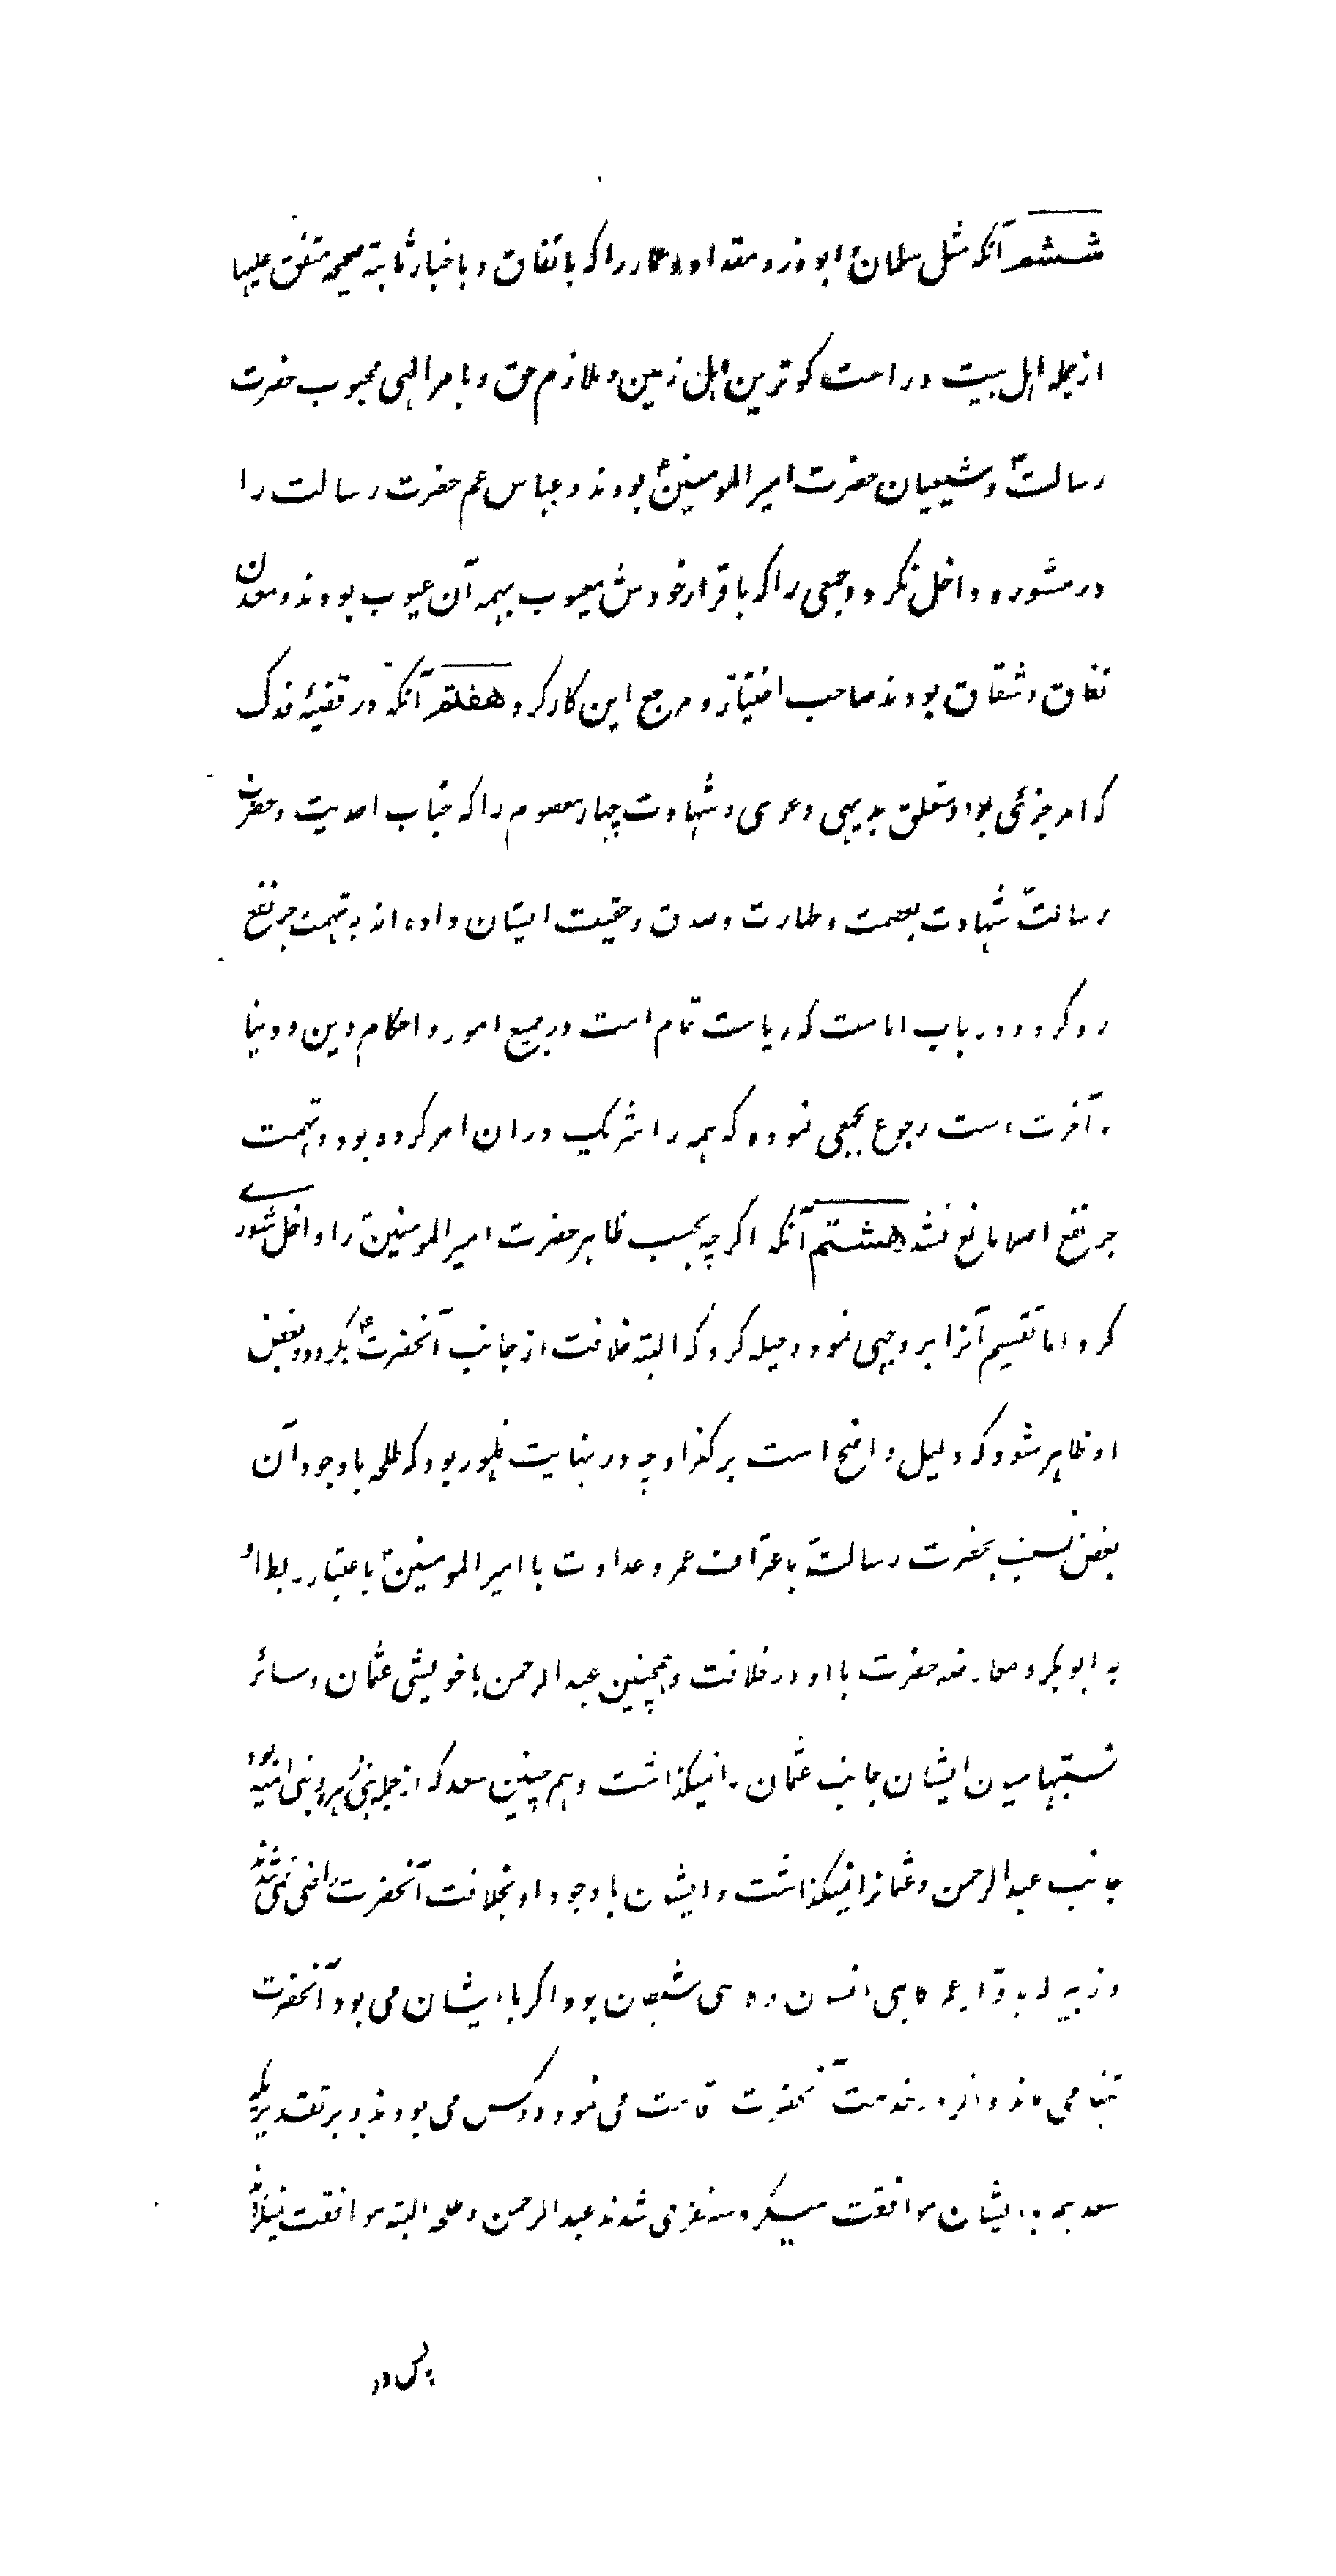 ششم آنکه مثل سلمان و ابوذر و مقداد و عمار را که باتفاق و باخبار ثابتهٔ صحیحه متفق علیها
از جمله اهل بیت و راست کو ترین اهل زمین و ملازم حق و بامر الهی محبوب حضرت
رسالتؐ و شیعیان حضرت امیر المومنینؑ بودند و عباس عم حضرت رسالت را
در مشوره داخل نکرد و جمعی را که باقرار خودش معیوب بهمه آن عیوب بودند و معدن
نفاق و شقاق بودند صاحب اختیار و مرجع این کار کرد هفتم آنکه در قضیهٔ فدک
که امر جزئی بود و متعلق بدیهی دعوی و شهادت چهار معصوم را که جناب احدیت و حضرت
رسالتؐ شهادت بعصمت و طهارت و صدق و حقیت ایشان داده اند به تهمت جر نفع
رد کرد و در باب امامت که ریاست تمام است در جمیع امور و احکام دین و دنیا
و آخرت است رجوع بجمعی نموده که همه را شریک در ان امر کرده بود و تهمت
جر نفع اصلا مانع نشد هشتم آنکه اکر چه بحسب ظاهر حضرت امیر المومنینؑ را داخل شورے
کرد اما تقسیم آنرا بر وجهی نمود و حیله کرد که البته خلافت از جانب آنحضرتؑ بکردد و بغض
او ظاهر شود که دلیل واضح است بر کفر او چه در نهایت ظهور بود که طلحه با وجود آن
بغض نسبت بحضرت رسالتؐ باعتراف عمر و عداوت با امیر المومنینؑ باعتبار ربط او
به ابو بکر و معارضه حضرت با او در خلافت و همچنین عبد الرحمن با خویشی عثمان و سائر
نسبتها میان ایشان جانب عثمان را نمیکذاشت و هم چنین سعد که از جمله بنی زهره و بنی امیه بود
جانب عبد الرحمن و عثمانرا نمیکذاشت و ایشان با وجود او بخلافت آنحضرتؑ راضی نمی شدند
و زبیر بود اکر با ایشان می بود آنحضرت
تنها می ماند و اکر در خدمت آنحضرت می نمود دو کس می بودند و بر تقدیریکه
سعد هم با ایشان موافقت میکرد سه نفر می شدند عبد الرحمن و طلحه البته موافقت نمیکردند
پس در